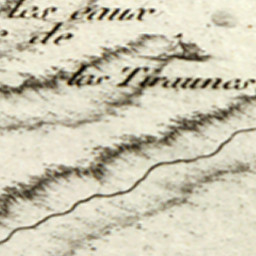 les eaux
de
las Tiraunas